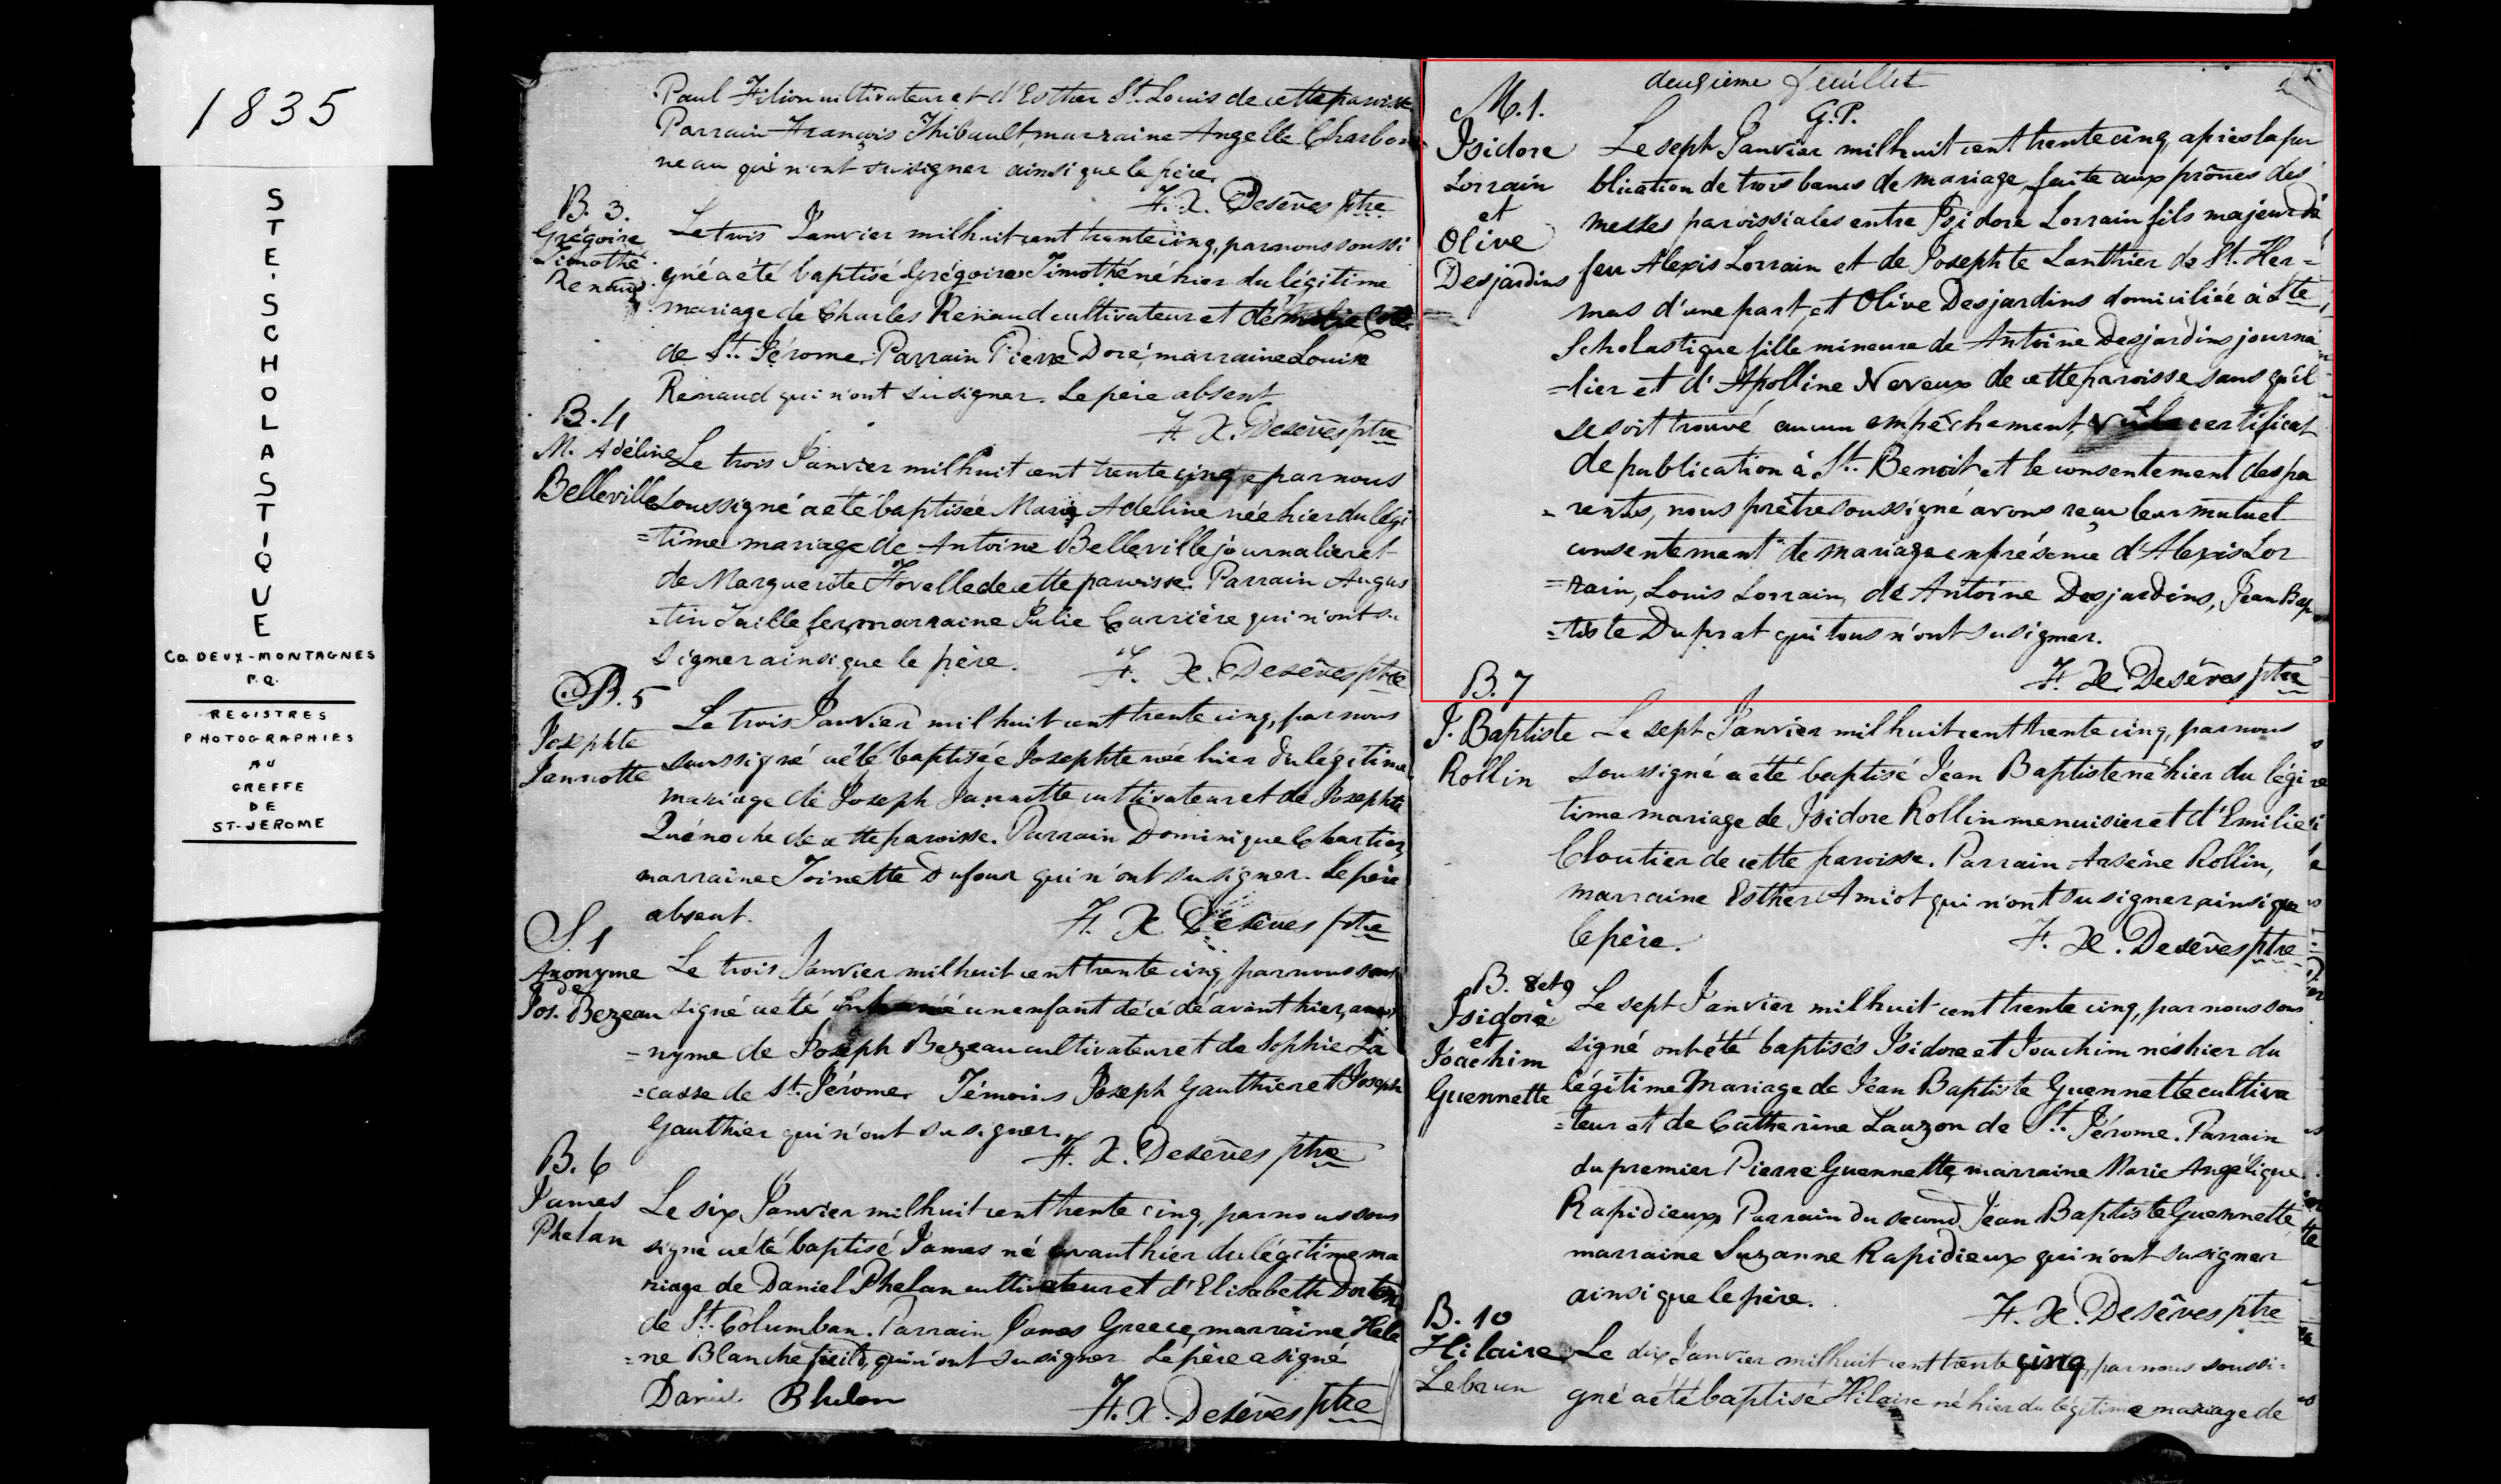 1835
STE-SCHOLASTIQUE
CO. DEUX-MONTAGNES
P.Q.
REGISTRES
PHOTOGRAPHIES
AU
GREFFE
DE
ST-JEROME
Paul Filion cultivateur et d'Esther St. Louis de cette paroisse
Parrain François Thibault, marraine Angelle Charbon
neau qui n'ont su signer ainsi que le père.
F. X. Desêves ptre
B. 3.
Grégoire
Timothé
Renaud
Le trois Janvier mil huit cent trente cinq, par nous soussi
gné a été baptisé Grégoire Timothé né hier du légitime
mariage de Charles Renaud cultivateur et
de St. Jérome. Parrain Pierre Doré, marraine Louise
Renaud qui n'ont su signer. Le père absent
F. X. Desêves ptre
B. 4
M. Adéline
Belleville
Le trois Janvier mil huit cent trente cinq, par nous
soussigné a été baptisée Marie Adéline née hier du légi
=time mariage de Antoine Belleville journalier et
de Marguerite Fovelle de cette paroisse. Parrain Augus
=tin Taillefer, marraine Julie Carrière qui n'ont su
signer ainsi que le père.
F. X. Desêves ptre
B. 5
Josephte
Jannotte
Le trois Janvier mil huit cent trente cinq, par nous
soussigné a été baptisée Josephte née hier du légitime
mariage de Joseph Jannotte cultivateur et de Josephte
Quénoche de cette paroisse. Parrain Dominique Chartier,
marraine Toinette Dufour qui n'ont su signer. Le père
absent.
F. X. Desêves ptre
S. 1
Anonyme
de
Jos. Bezeau
Le trois Janvier mil huit cent trente cinq, par nous sous
signé a été inhumé un enfant décédé avant hier, ano
=nyme de Joseph Bezeau cultivateur et de Sophie La
=casse de St. Jérome. Témoins Joseph Gauthier et Joseph
Gauthier qui n'ont su signer.
F. X. Desêves ptre
B. 6
James
Phelan
Le six Janvier mil huit cent trente cinq, par nous sous
signé a été baptisé James né avant hier du légitime ma
riage de Daniel Phelan cultivateur et d'Elisabeth
de St. Columban. Parrain James Greece, marraine Hele
=ne Blanchefield, qui n'ont su signer. Le père a signé
Daniel Phelan
F. X. Desêves ptre
deuxième feuillet
G. P.
M. 1.
Isidore
Lorrain
et
Olive
Desjardins
Le sept Janvier mil huit cent trente cinq, après la pu
blication de trois bancs de mariage faite aux prônes des
messes paroissiales entre Isidore Lorrain fils majeur de
feu Alexis Lorrain et de Josephte Lanthier de St. Her=
mas d'une part, et Olive Desjardins domiciliée à Ste
Scholastique fille mineure de Antoine Desjardins journa
=lier et d'Apolline Neveux de cette paroisse sans qu'il
se soit trouvé aucun empêchement, vu le certificat
de publication à St. Benoit, et le consentement des pa
=rents, nous prêtre soussigné avons reçu leur mutuel
consentement de mariage en présence d'Alexis Lor
=rain, Louis Lorrain, de Antoine Desjardins, Jean Bap
=tiste Duprat qui tous n'ont su signer.
F. X. Desêves ptre
B. 7
J. Baptiste
Rollin
Le sept Janvier mil huit cent trente cinq, par nous
soussigné a été baptisé Jean Baptiste né hier du légi
time mariage de Isidore Rollin menuisier et d'Emilie
Cloutier de cette paroisse. Parrain Arsène Rollin,
marraine Esther Amiot qui n'ont su signer, ainsi que
le père.
F. X. Desêves ptre
B. 8 et 9
Isidore
et
Joachim
Guennette
Le sept Janvier mil huit cent trente cinq, par nous sous
signé ont été baptisés Isidore et Joachim nés hier du
légitime mariage de Jean Baptiste Guennette cultiva
=teur et de Catherine Lauzon de St. Jérome. Parrain
du premier Pierre Guennette, marraine Marie Angélique
Rapidieux. Parrain du second, Jean Baptiste Guennette
marraine Suzanne Rapidieux qui n'ont su signer
ainsi que le père.
F. X. Desêves ptre
B. 10
Hilaire
Lebrun
Le dix Janvier mil huit cent trente cinq, par nous soussi=
gné a été baptisé Hilaire né hier du légitime mariage de